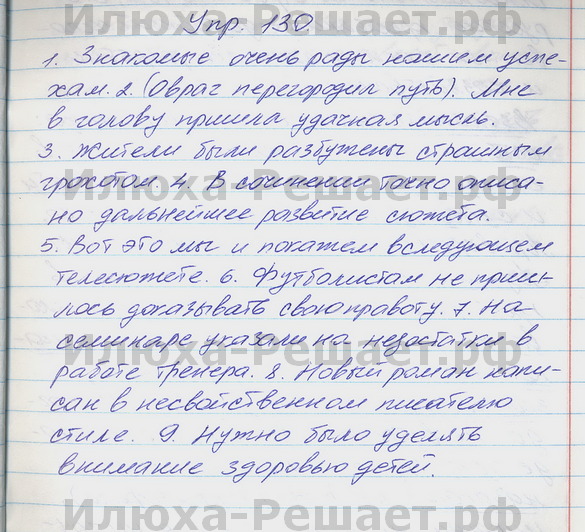 Илюха-Решает.рф
Упр. 130.
1. Знакомые очень рады нашим успе-
хам. 2. (Овраг перегородил путь). Мне
в голову пришла удачная мысль.
3. Жители были разбужены страшным
грохотом. 4. В сочинении точно описа-
но дальнейшее развитие сюжета.
5. Вот это мы и покажем в следующем
телесюжете. 6. Футболистам не приш-
лось доказывать свою правоту. 7. На
семинаре указали на недостатки в
Илюха-Решает.рф
работе тренера. 8. Новый роман напи-
сан в несвойственном писателю
стиле. 9. Нужно было уделять
внимание здоровью детей.
Илюха-Решает.рф